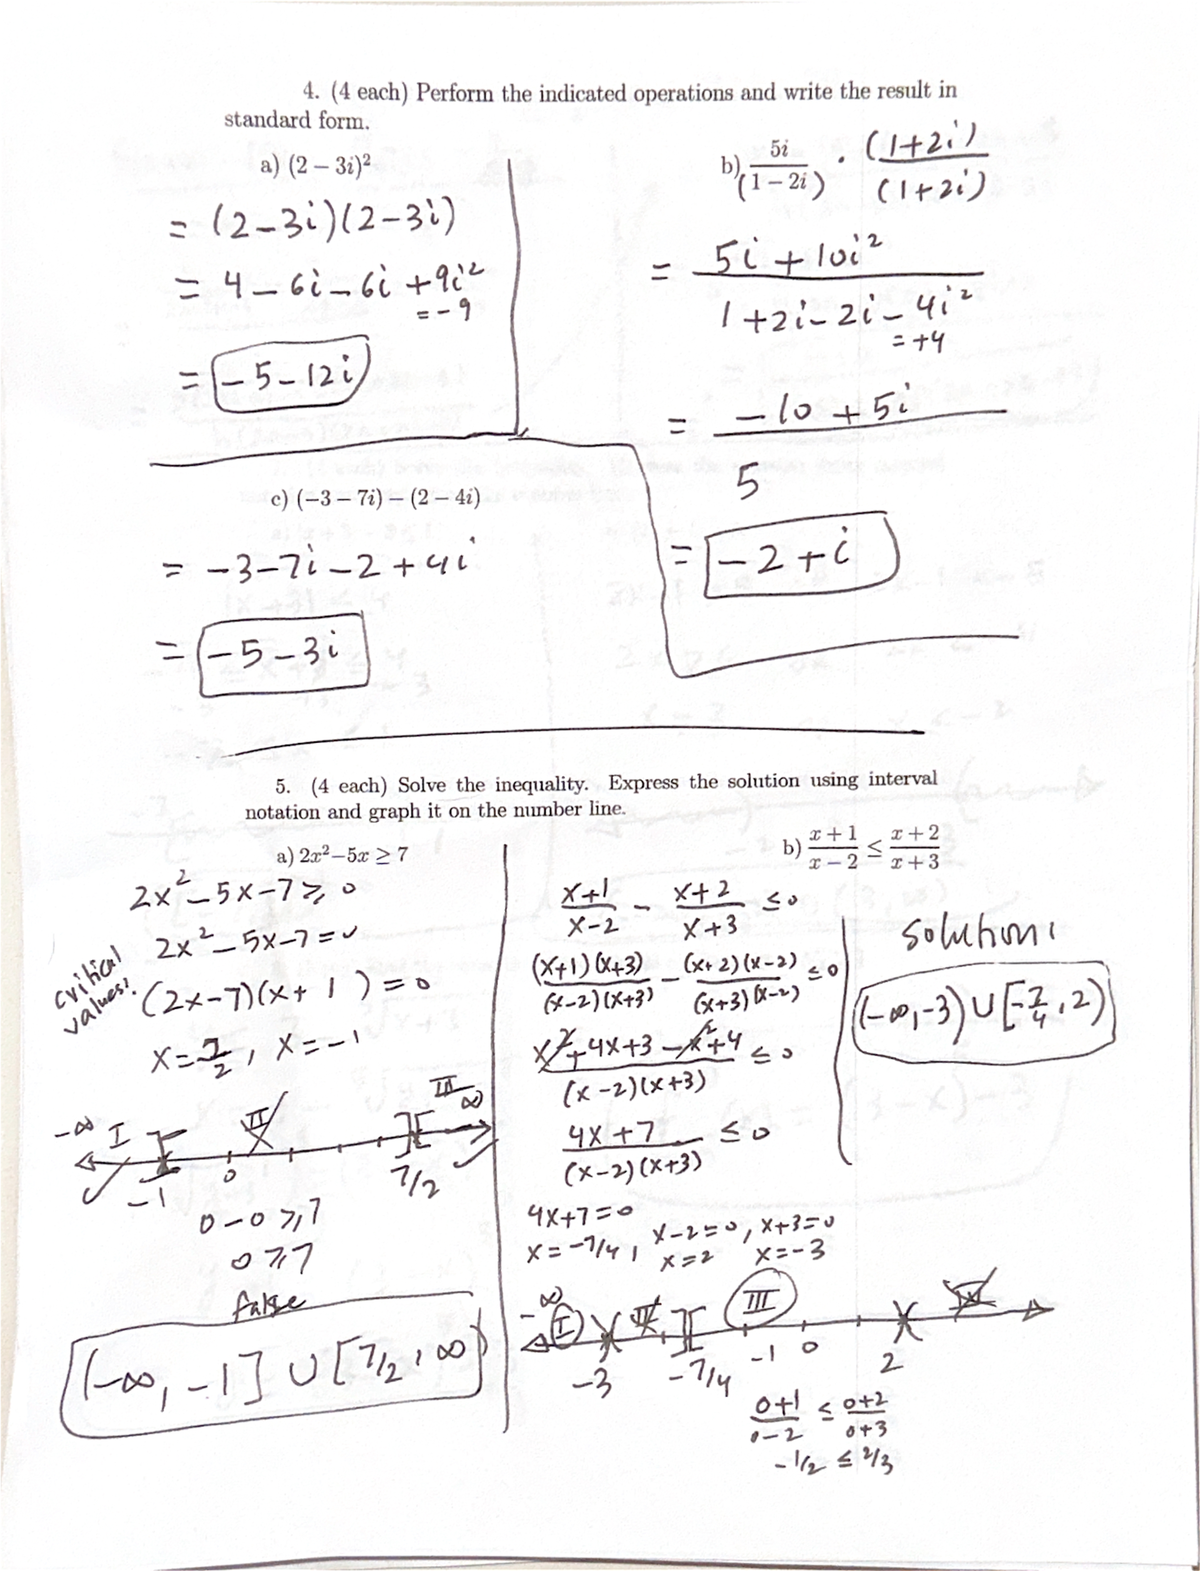 4. (4 each) Perform the indicated operations and write the result in
standard form.
a) (2 – 3i)²
= (2-3i)(2-3i)
= 4 - 6i - 6i + 9i²
= -9
= -5 - 12i
b) 5i/(1 – 2i) · (1+2i)/(1+2i)
= (5i + 10i²)/(1 + 2i - 2i - 4i²)
= +4
= (-10 + 5i)/5
= -2 + i
c) (−3 – 7i) – (2 – 4i)
= -3-7i-2+4i
= -5-3i
5. (4 each) Solve the inequality. Express the solution using interval
notation and graph it on the number line.
a) 2x²–5x ≥ 7
2x² - 5x - 7 ≥ 0
2x² - 5x - 7 = 0
critical
values:
(2x-7)(x+1) = 0
x = 7/2, x = -1
-∞ I II III ∞
-1 0 7/2
0-0 ≥ 7
0 ≥ 7
false
(-∞, -1] ∪ [7/2, ∞)
b) (x + 1)/(x – 2) ≤ (x + 2)/(x + 3)
(x+1)/(x-2) - (x+2)/(x+3) ≤ 0
(x+1)(x+3)/(x-2)(x+3) - (x+2)(x-2)/(x+3)(x-2) ≤ 0
(x² + 4x + 3 - x² + 4)/(x-2)(x+3) ≤ 0
(4x + 7)/(x-2)(x+3) ≤ 0
4x+7=0
x = -7/4, x-2=0, x+3=0
x=2 x=-3
-∞ I II III IV
-3 -7/4 -1 0 2
(0+1)/(0-2) ≤ (0+2)/(0+3)
-1/2 ≤ 2/3
solution:
(-∞,-3) ∪ [-7/4, 2)